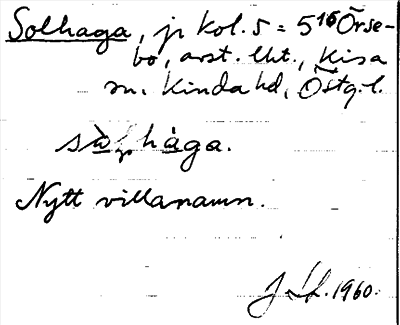 Solhaga, jr kol. 5 = 5¹⁶ Örse-
bo, avst. lht., Kisa
sn, Kinda hd, Östg. l.
håga.
Nytt villanamn.
1960.